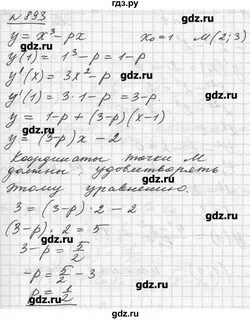 гдз.ру
№ 893
y = x³ - px    x₀ = 1    M(2; 3)
y(1) = 1³ - p = 1 - p
y'(x) = 3x² - p
y'(1) = 3·1 - p = 3 - p.
y = 1 - p + (3 - p)(x - 1)
y = (3 - p)x - 2
Координаты точки M
должны удовлетворять
этому уравнению.
3 = (3 - p)·2 - 2
(3 - p)·2 = 5
3 - p = 5/2
-p = 5/2 - 3
p = 1/2